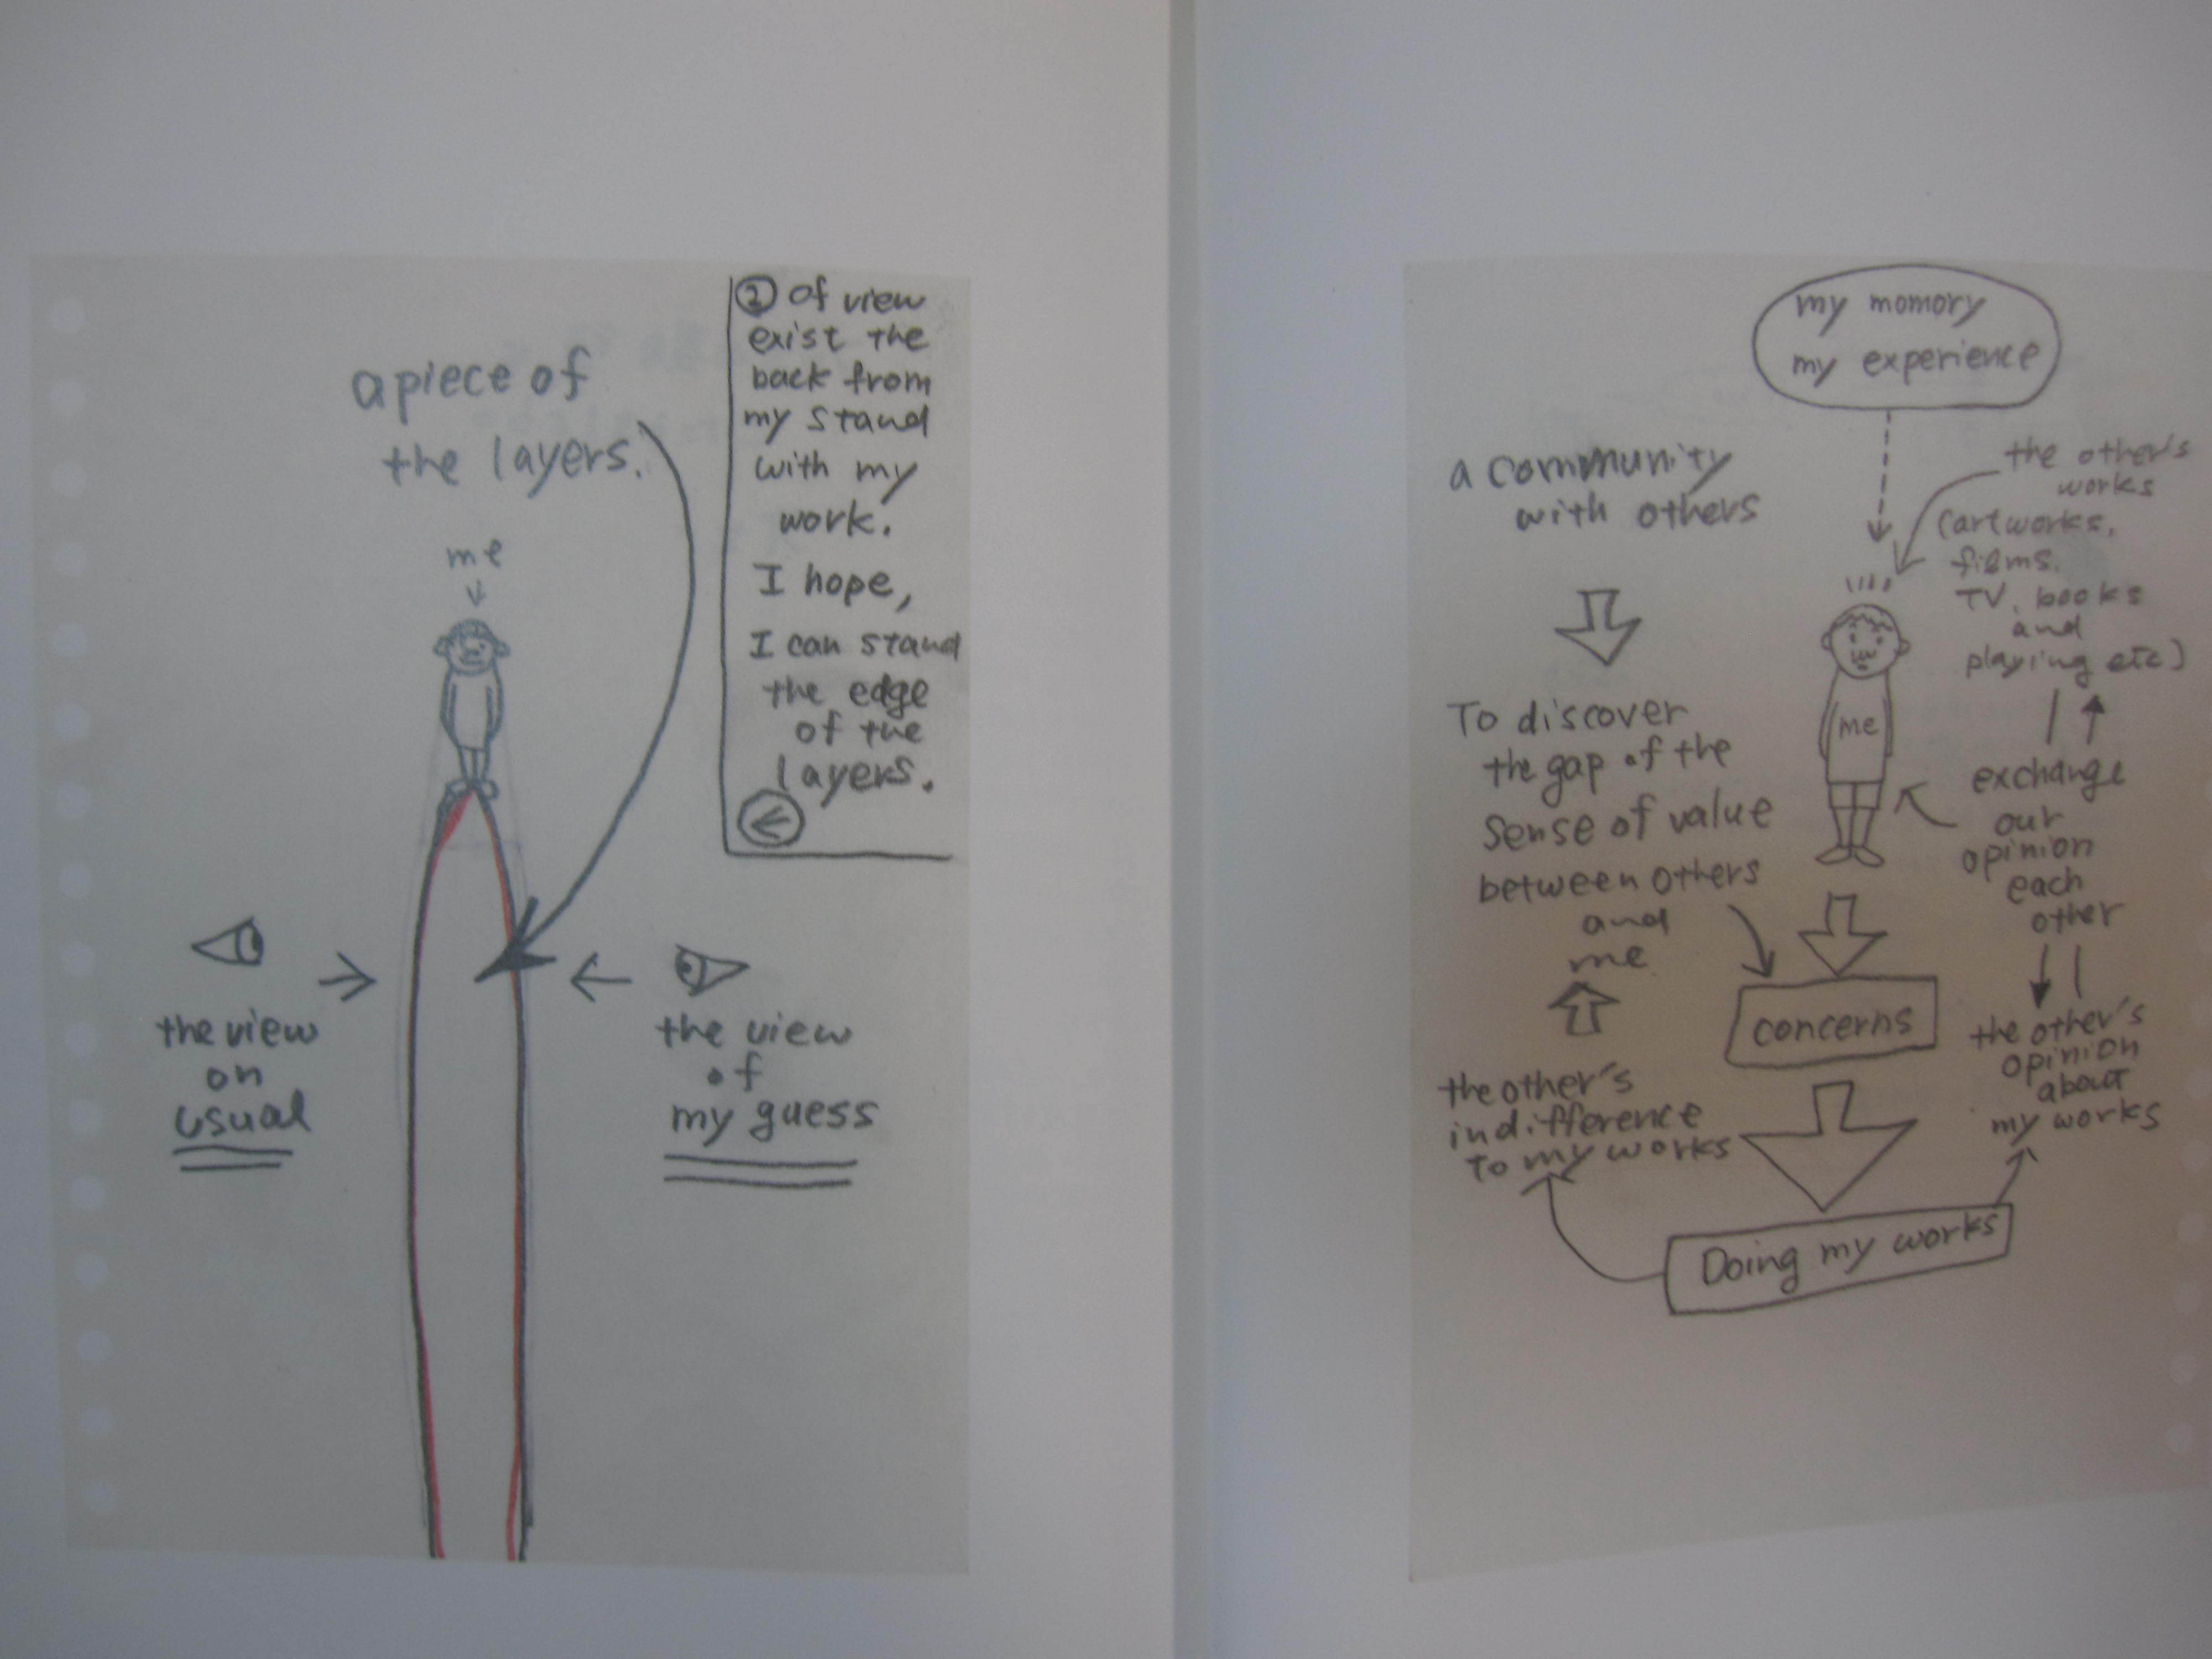 a piece of
the layers.
me
the view
on
usual
the view
of
my guess
② of view
exist the
back from
my stand
with my
work.
I hope,
I can stand
the edge
of the
layers.
my momory
my experience
a community
with others
To discover
the gap of the
sense of value
between others
and
me
the other's
indifference
to my works
the other's
works
(artworks,
films.
TV. books
and
playing etc)
me
exchange
our
opinion
each
other
concerns
the other's
opinion
about
my works
Doing my works